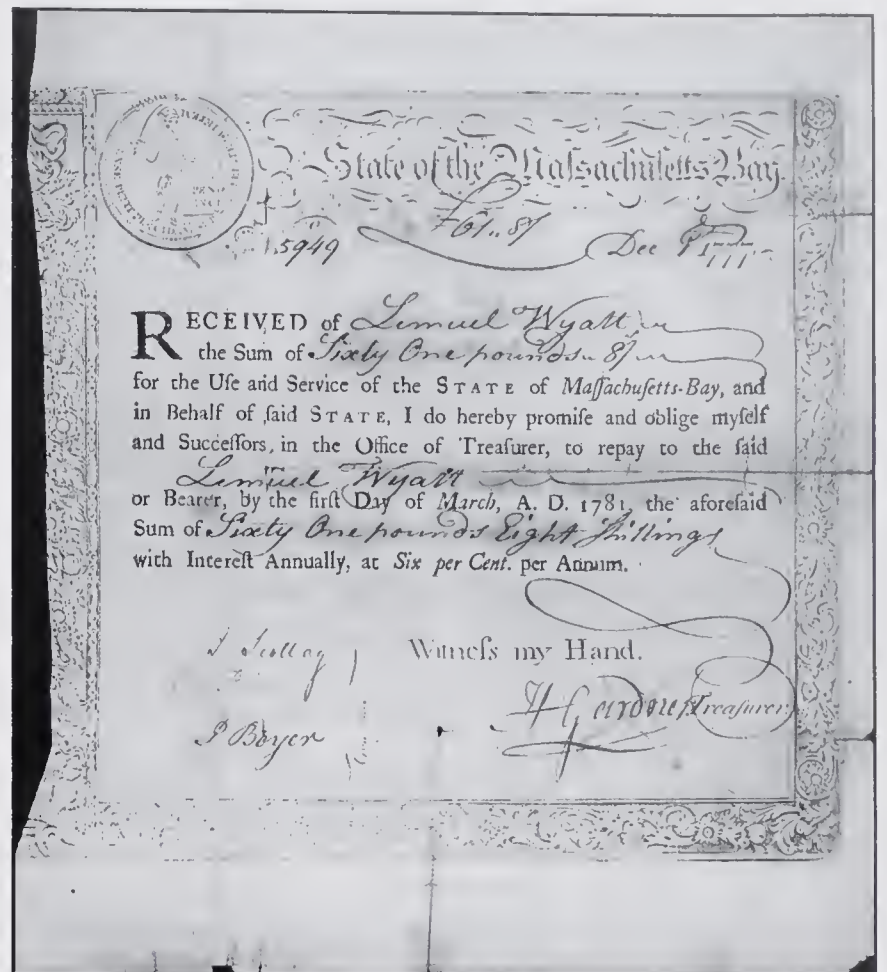 State of the Maſsachuſetts Bay.
5949 £61..8/ Dec 1777
RECEIVED of Lemuel Wyatt
the Sum of Sixty One pounds 8/
for the Uſe and Service of the STATE of Maſſachuſetts-Bay, and
in Behalf of ſaid STATE, I do hereby promiſe and oblige myſelf
and Succeſſors, in the Office of Treaſurer, to repay to the ſaid
Lemuel Wyatt
or Bearer, by the firſt Day of March, A. D. 1781, the aforeſaid
Sum of Sixty One pounds Eight Shillings
with Intereſt Annually, at Six per Cent. per Annum.
Witneſs my Hand.
H Gardner Treaſurer
P Boyer